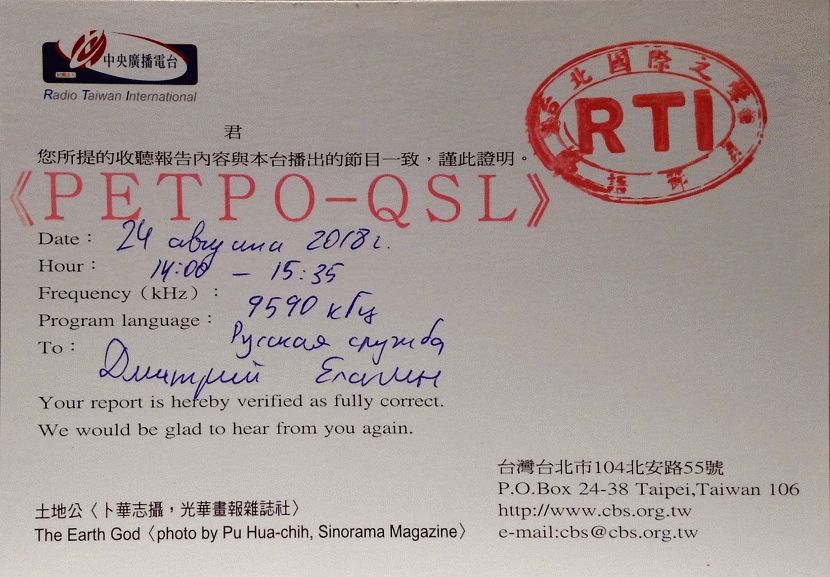 中央廣播電台
財團法人
Radio Taiwan International
台北國際之聲
RTI
君
您所提的收聽報告內容與本台播出的節目一致，謹此證明。
《РЕТРО-QSL》
Date： 24 августа 2018 г.
Hour： 14:00 – 15:35
Frequency（kHz）： 9590 кГц
Program language： Русская служба
To： Дмитрий Елагин
Your report is hereby verified as fully correct.
We would be glad to hear from you again.
台灣台北市104北安路55號
P.O.Box 24-38 Taipei,Taiwan 106
http://www.cbs.org.tw
e-mail:cbs@cbs.org.tw
土地公〈卜華志攝，光華畫報雜誌社〉
The Earth God〈photo by Pu Hua-chih, Sinorama Magazine〉